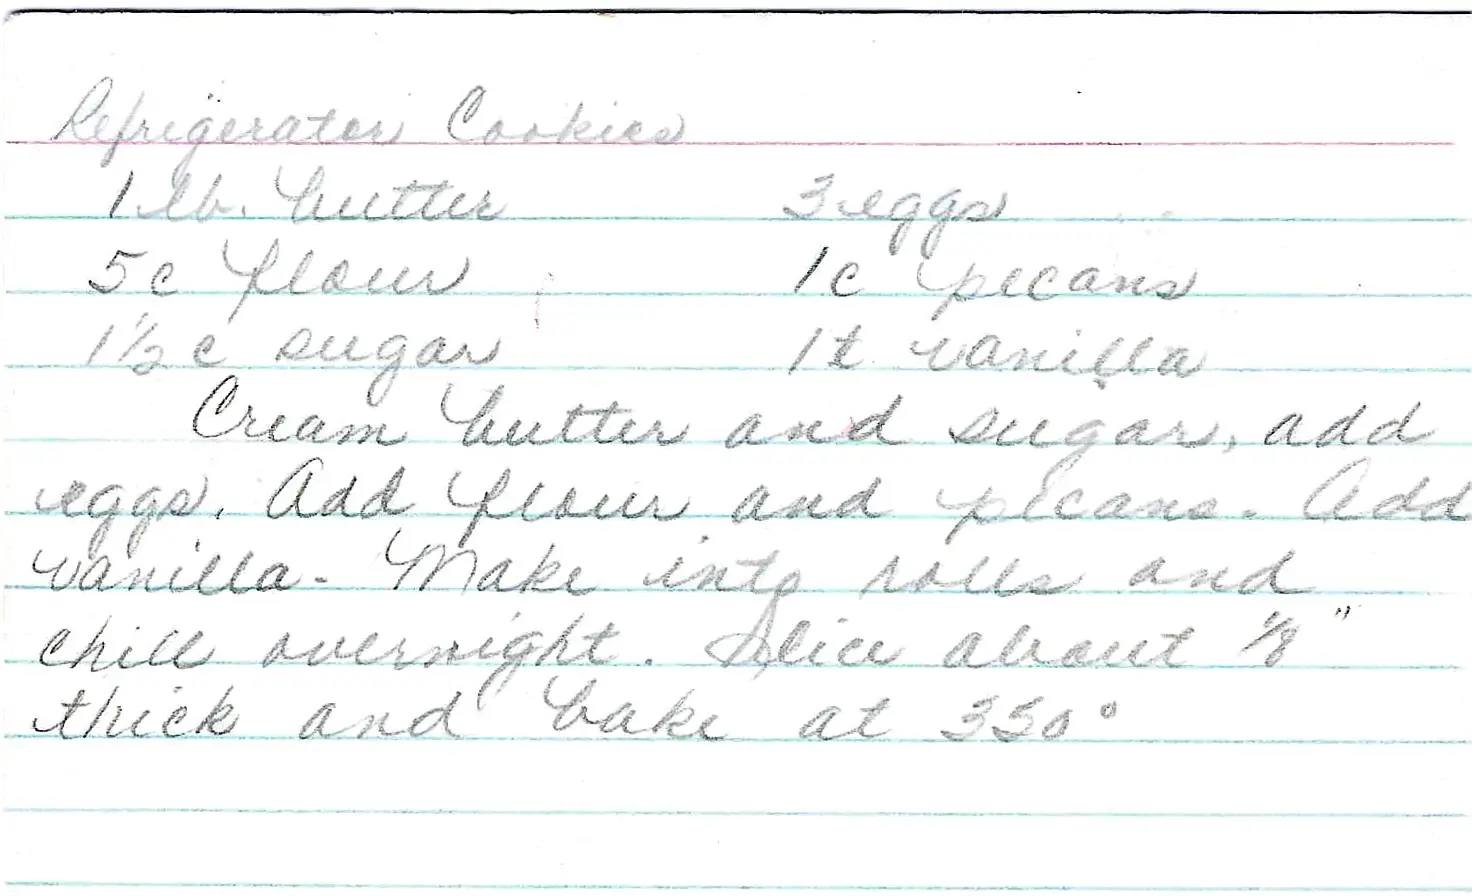 Refrigerator Cookies
1 lb. butter 3 eggs
5 c flour 1 c pecans
1 1/2 c sugar 1 t vanilla
Cream butter and sugar, add
eggs. Add flour and pecans. Add
vanilla. Make into rolls and
chill overnight. Slice about 1/8"
thick and bake at 350°